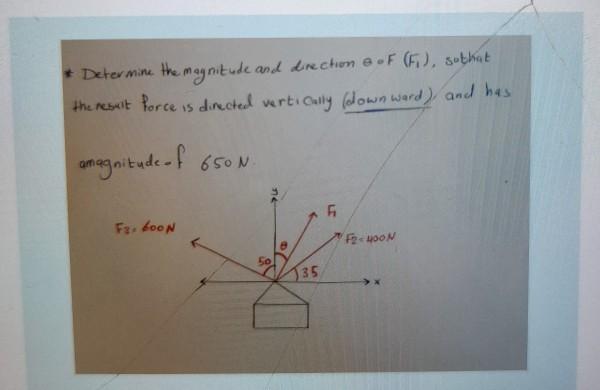 * Determine the magnitude and direction θ of F (F₁), so that
the result force is directed vertically (downward) and has
amagnitude of 650 N.
y
F₁
F3 = 600N
F2 = 400N
θ
50
35
x